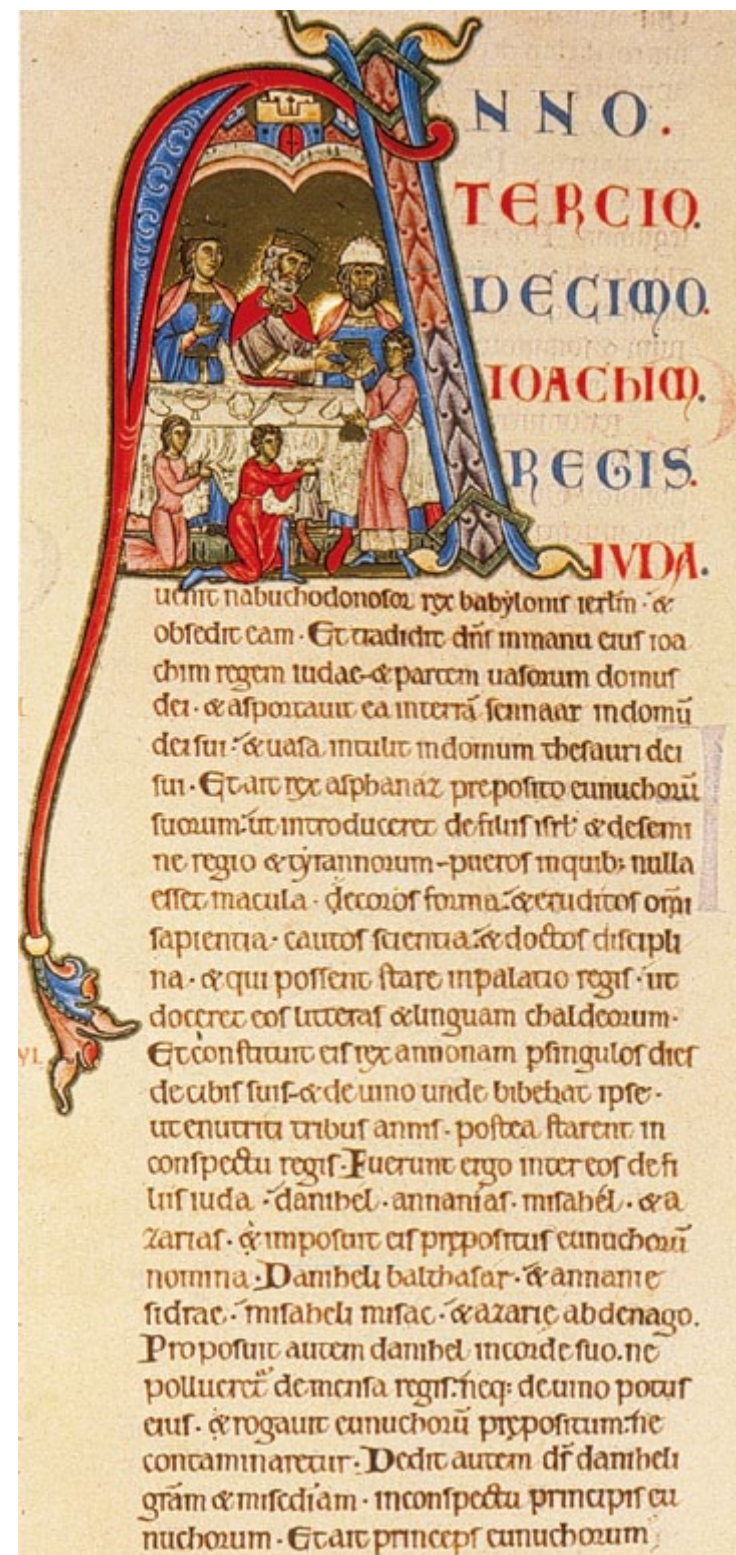 ANNO.
TERCIO.
DECIMO.
IOAChIM.
REGIS.
IUDA.
uenit nabuchodonosor rex babylonis ierl̄m · &
obsedit eam · Et tradidit dn̄s inmanu eius ioa
chim regem iudae · & partem uasorum domus
dei · & asportauit ea interrā sennaar indomū
dei sui · & uasa intulit indomum thesauri dei
sui · Et ait rex asphanaz preposito eunuchorū
suorum · ut introduceret defiliis isrl̄ & desemi
ne regio & tyrannorum · pueros inquib; nulla
esset macula · decoros forma · & eruditos om̄i
sapientia · cautos scientia · & doctos discipli
na · & qui possent stare inpalatio regis · ut
doceret eos litteras & linguam chaldeorum ·
Et constituit eis rex annonam p̱singulos dies
decibis suis · & deuino unde bibebat ipse ·
ut enutriti tribus annis · postea starent in
conspectu regis · Fuerunt ergo inter eos defi
liis iuda · danihel · annanias · misahel · & a
zarias · & imposuit eis prepositus eunuchorū
nomina · Daniheli balthasar · & annanie
sidrac · misaheli misac · & azarie abdenago.
Proposuit autem danihel incorde suo. ne
pollueret^r demensa regis · neq; deuino potus
eius · & rogauit eunuchorū prepositum · ne
contaminaretur · Dedit autem ds̄ daniheli
grām & mis̄ediam · inconspectu principis eu
nuchorum · Et ait princeps eunuchorum